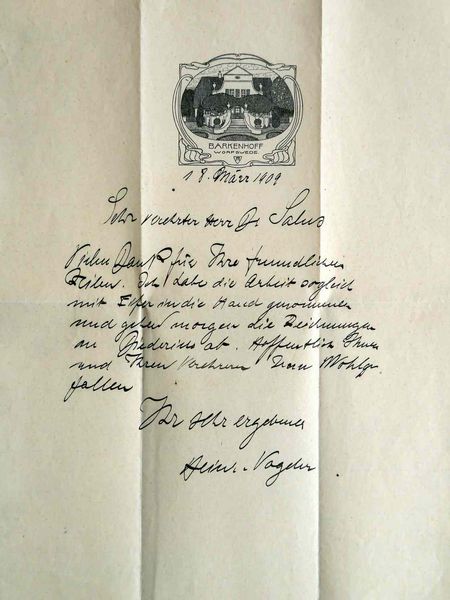 BARKENHOFF
WORPSWEDE
18. März 1909
Sehr verehrter Herr Dr Salus
Vielen Dank für Ihre freundlichen
Zeilen. Ich habe die Arbeit sogleich
mit Eifer in die Hand genommen
und gehen morgen die Zeichnungen
an ab. Hoffentlich Ihnen
und Ihren Verehrern zum Wohlge-
fallen
Ihr sehr ergebener
Heinr. Vogeler